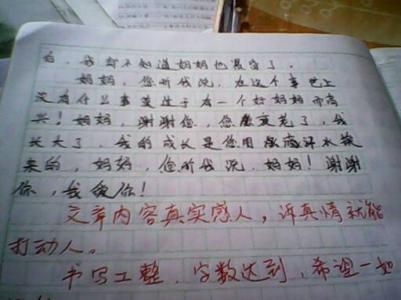 白，我却不知道妈妈也没留了。
妈妈，您听我说，在这个事世上
没有什么事莫过于有一个好妈妈而高
兴！妈妈，谢谢您，您变老了，我
长大了，我的成长是您用血滴汗水换
来的，妈妈，您听我说，妈妈！谢谢
你，我爱你！
文章内容真实感人，诉真情就能
打动人。
书写工整，字数达到，希望一如